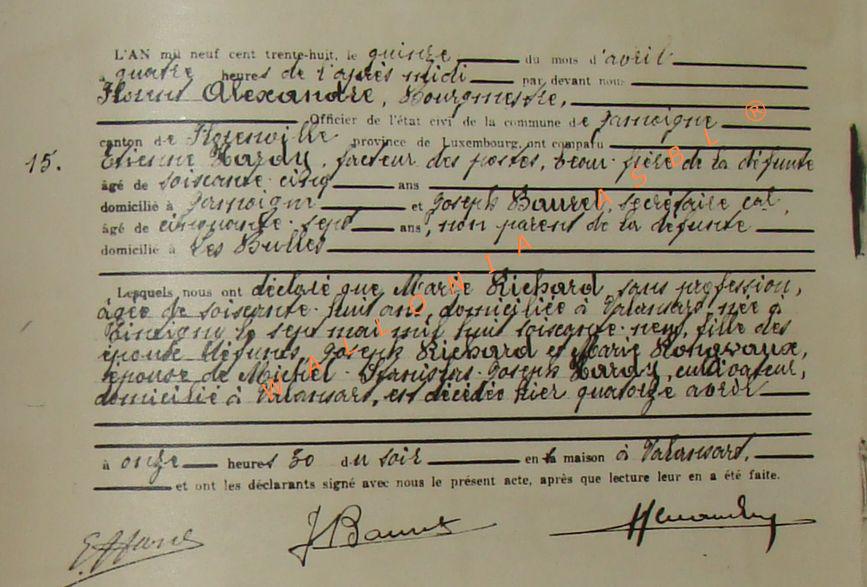 L'AN mil neuf cent trente-huit, le quinze du mois d'avril
à quatre heures de l'après midi par devant nous
Florent Alexandre, Bourgmestre,
Officier de l'état civil de la commune de Jamoigne
canton de Florenville province de Luxembourg, ont comparu
15. Etienne Hardy, facteur des postes, beau-frère de la défunte
âgé de soixante-cinq ans
domicilié à Jamoigne et Joseph Baurel, secrétaire cal,
âgé de cinquante-sept ans, non parent de la défunte
domicilié à Les Bulles
Lesquels nous ont déclaré que Marie Richard, sans profession,
âgée de soixante-huit ans, domiciliée à Valansart, née à
le sept mai mil huit soixante-neuf, fille des
époux défunts, Joseph Richard et Marie Rongvaux,
épouse de Michel-Stanislas-Joseph Hardy, cultivateur,
domicilié à Valansart, est décédée hier quatorze avril
à onze heures 30 du soir en sa maison à Valansart,
et ont les déclarants signé avec nous le présent acte, après que lecture leur en a été faite.
WALLONIA ASBL ®